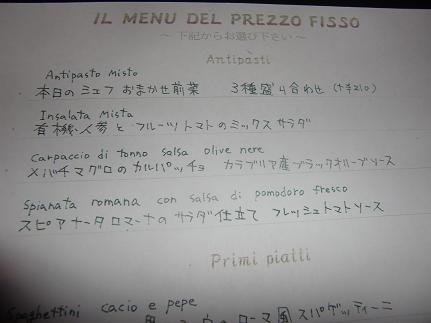 IL MENU DEL PREZZO FISSO
〜 下記からお選び下さい 〜
Antipasti
Antipasto Misto
本日のシェフおまかせ前菜 3種盛り合わせ (+¥210)
Insalata Mista
有機人参とフルーツトマトのミックスサラダ
Carpaccio di tonno salsa olive nere
メバチマグロのカルパッチョ カラブリア産ブラックオリーブソース
Spianata romana con salsa di pomodoro fresco
スピアナータロマーナのサラダ仕立て フレッシュトマトソース
Primi piatti
Spaghettini cacio e pepe
ローマ風 スパゲッティーニ